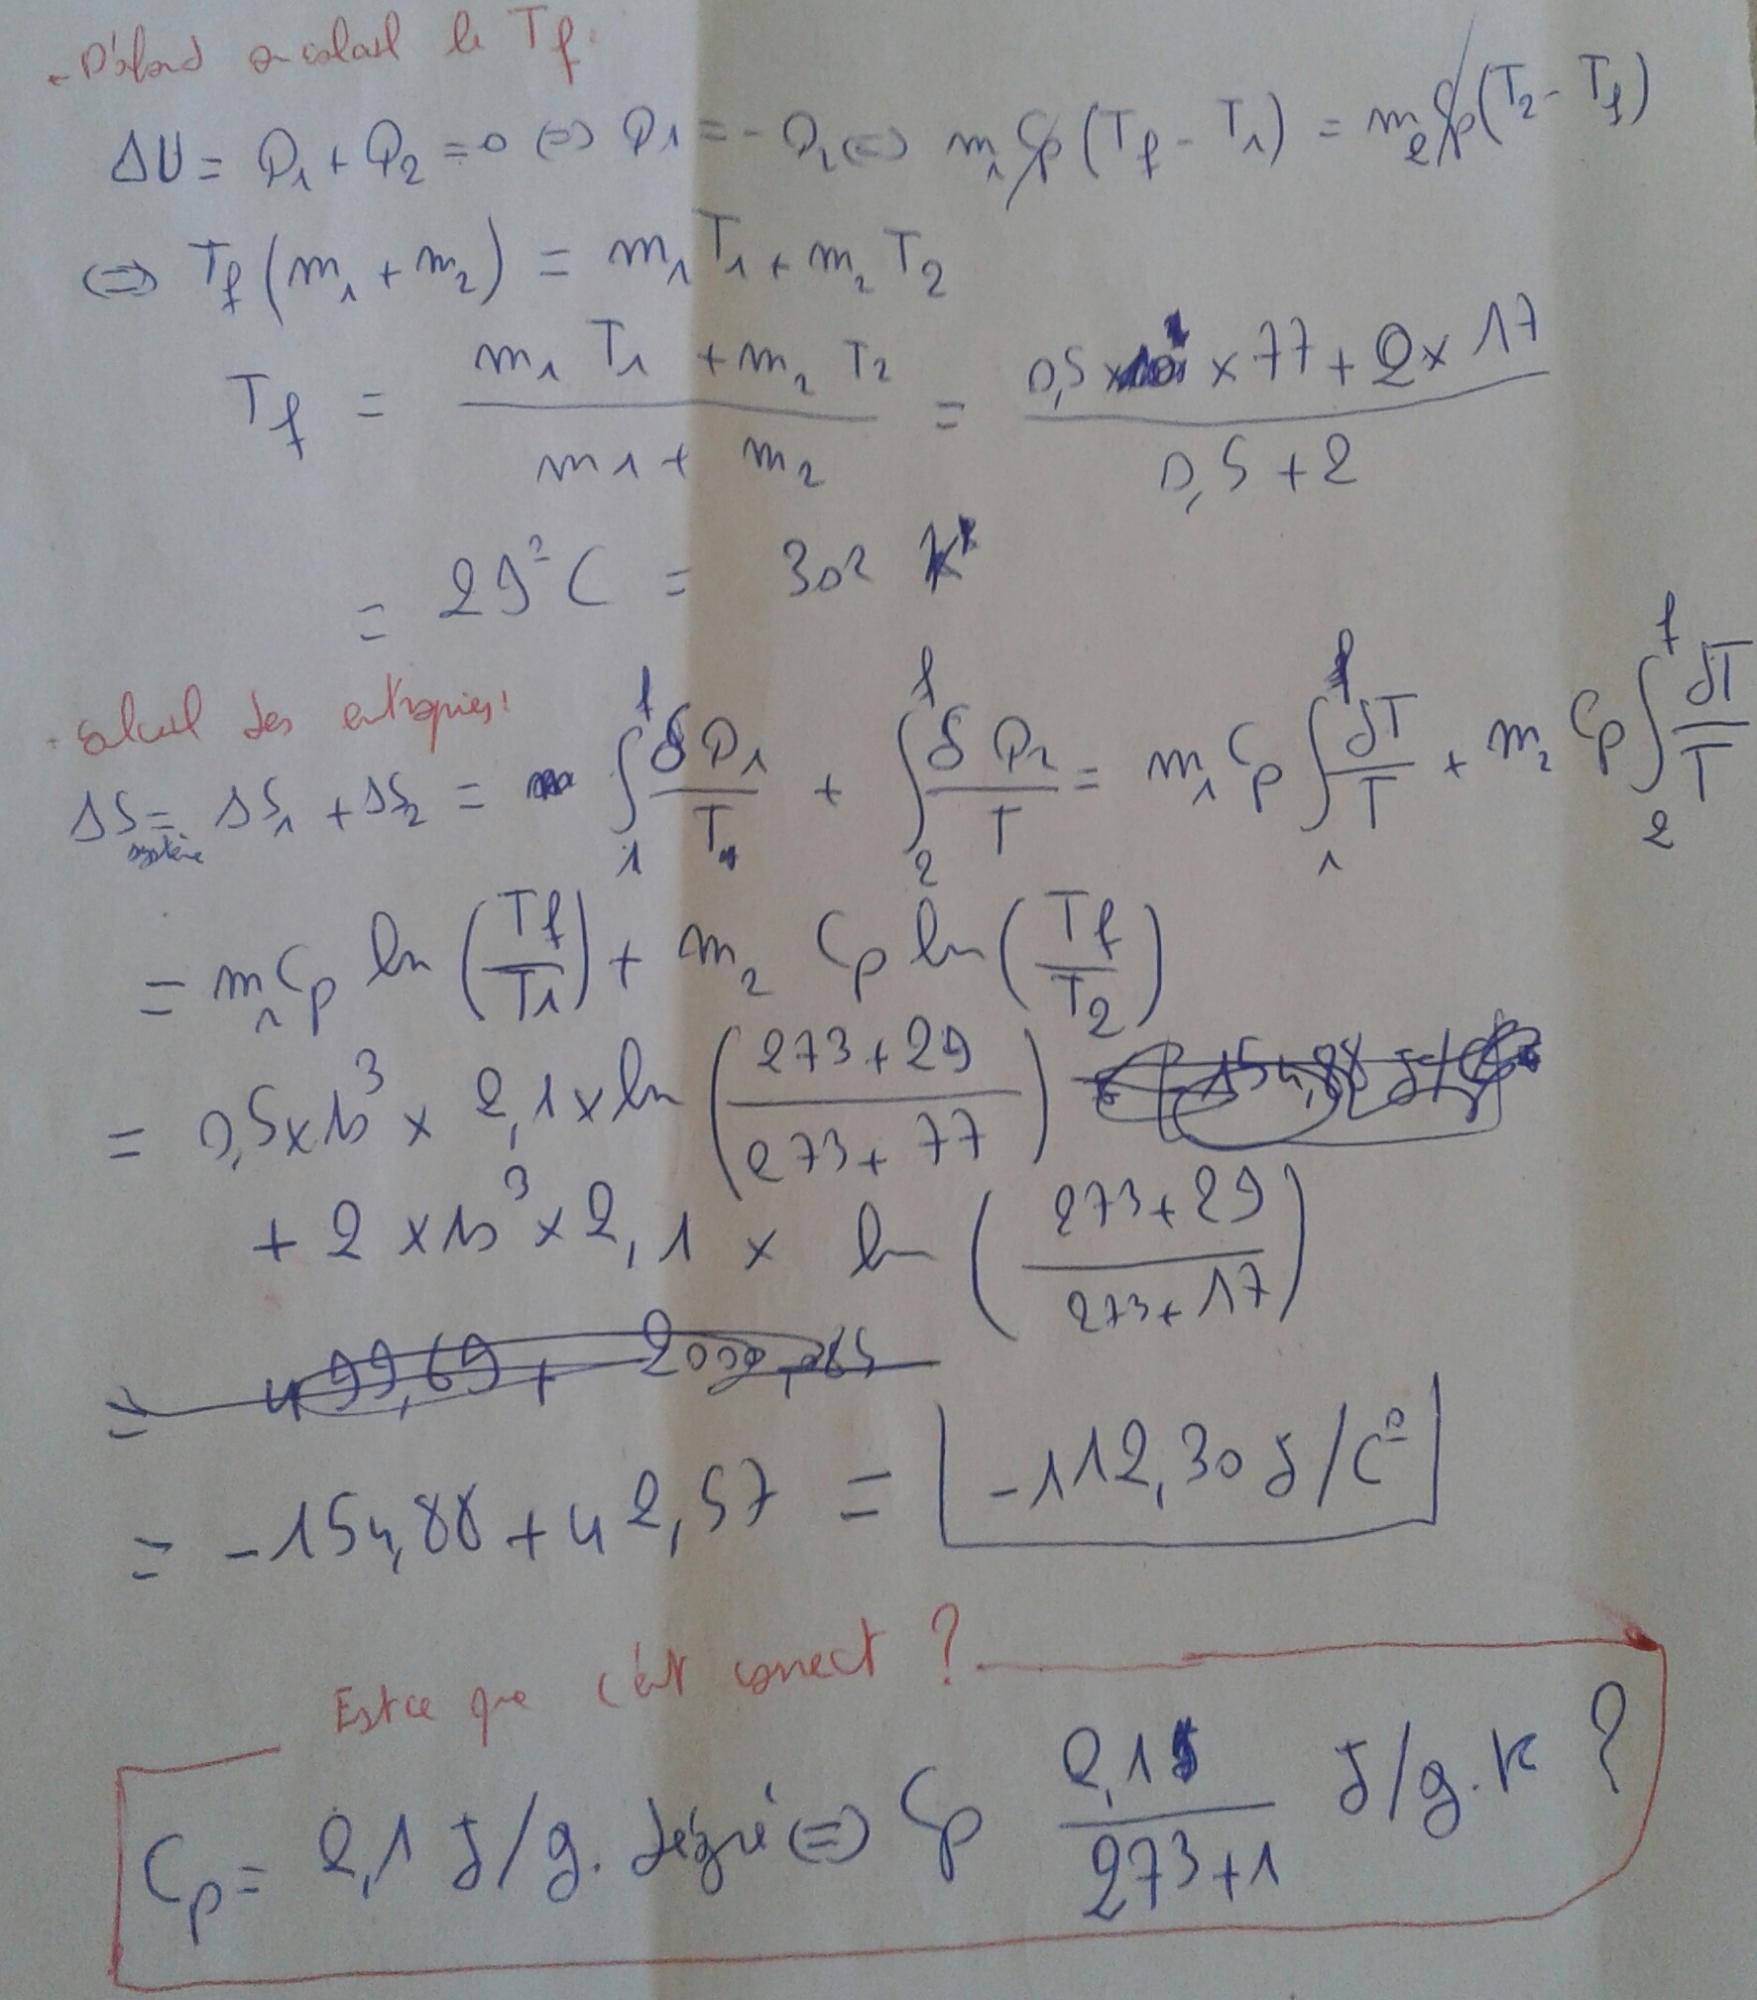 - D'abord on calcul le Tf:
ΔU = Q1 + Q2 = 0 <=> Q1 = - Q2 <=> m1 Cp (Tf - T1) = m2 Cp (T2 - Tf)
<=> Tf (m1 + m2) = m1 T1 + m2 T2
Tf = (m1 T1 + m2 T2) / (m1 + m2) = (0,5 x 77 + 2 x 17) / (0,5 + 2)
= 29°C = 302 K
- calcul des entropies:
ΔS système = ΔS1 + ΔS2 = ∫1^f δQ1/T + ∫2^f δQ2/T = m1 Cp ∫1^f dT/T + m2 Cp ∫2^f dT/T
= m1 Cp ln (Tf/T1) + m2 Cp ln (Tf/T2)
= 0,5 x 10^3 x 2,1 x ln ((273 + 29) / (273 + 77))
+ 2 x 10^3 x 2,1 x ln ((273 + 29) / (273 + 17))
= 499,69 +
= -154,88 + 42,57 = -112,30 J/C°
Est ce que c'est correct ?
Cp = 2,1 J/g. dégré <=> Cp 2,1 / (273 + 1) J/g.K ?